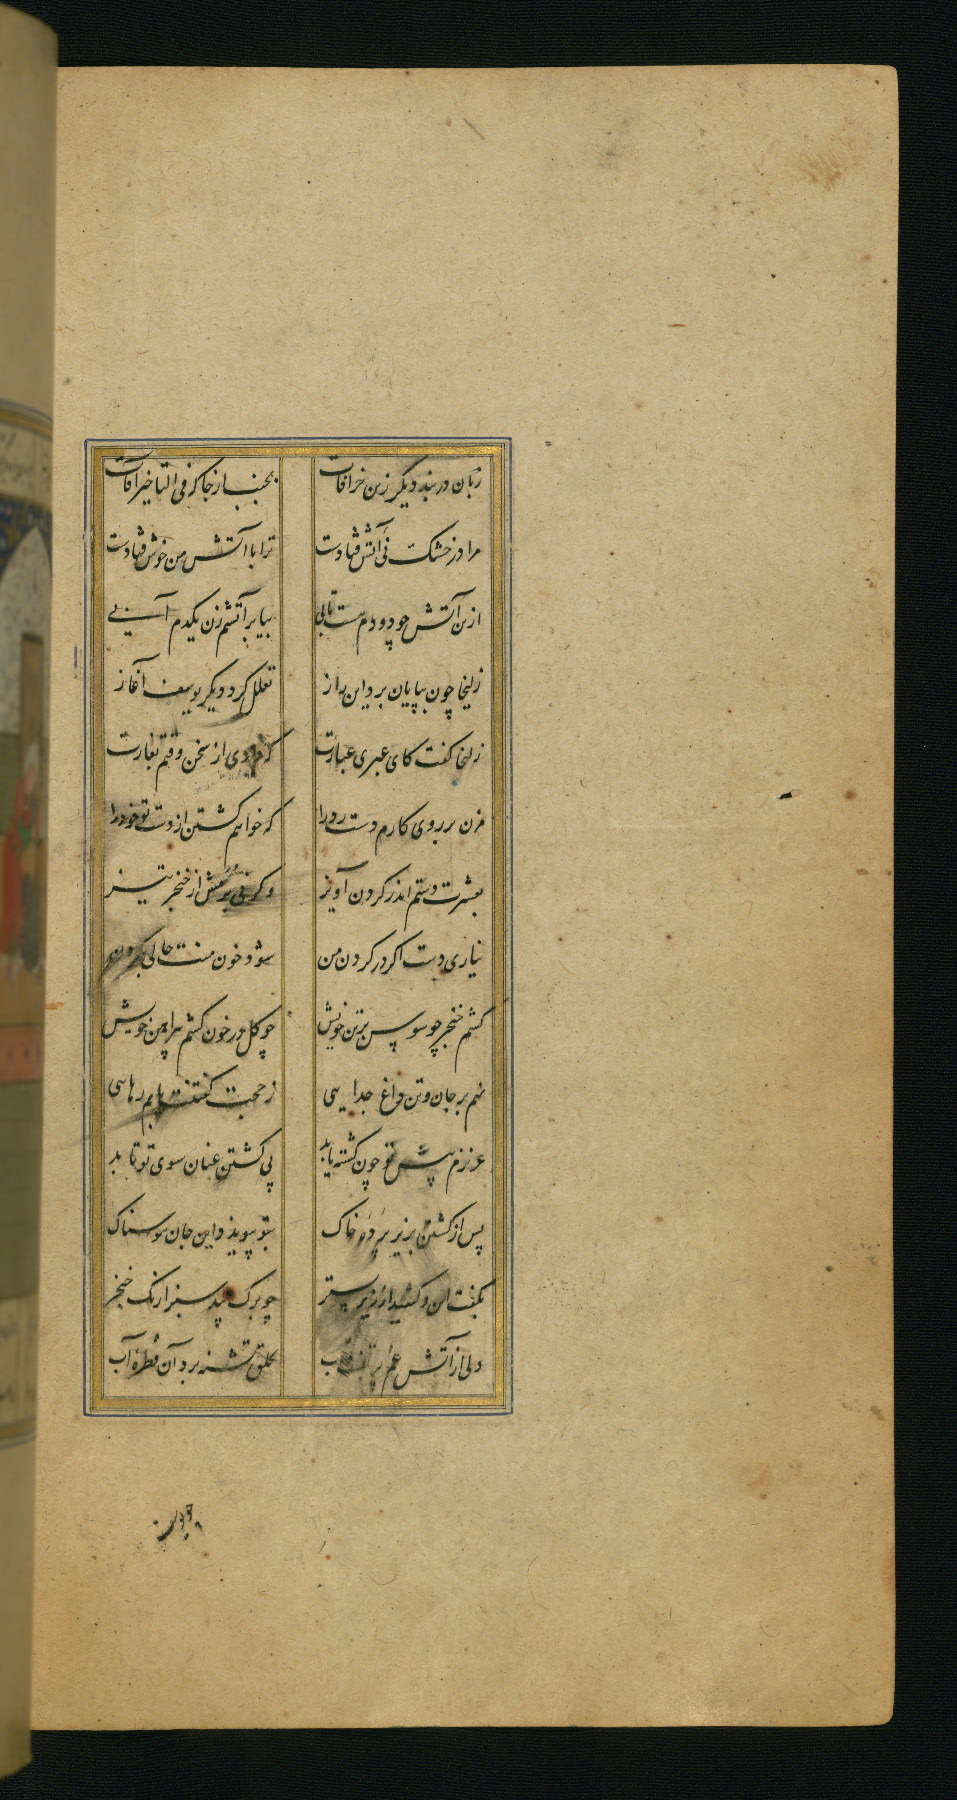 زبان دربند دیگر زین خرافات بجنب از جا که فی التاخیر آفات
مرا در خشک نی آتش فتادت ترا با آتش من خوش فتادت
ازین آتش چو دودم هست تابی بیا بر آتشم زن یکدم آبی
زلیخا چون بپایان برد این راز تعلل کرد دیگر یوسف آغاز
زلیخا گفت کای عبری عبارت که بردی از سخن وقتم بغارت
مزن بر روی کارم دست رد را که خواهم کشتن از دست تو خود را
بعشرت دستم اندر گردن آویز وگرنی برمش از خنجر تیز
نیاری دست اگر در گردن من شود خون منت حالی بگردن
کشم خنجر چو سوسن بر تن خویش چو گل در خون کشم پیراهن خویش
نهم بر جان و تن داغ جدایی ز حجت گفتنت یابم رهایی
عزیزم پیش تو چون کشته یابد پی کشتن عنان سوی تو تابد
پس از کشتن بزیر پرده خاک بتو پیوندد این جان هوسناک
بگفت این و کشید از زیر بستر چو برگ بید سبزارنگ خنجر
دلی از آتش غم پر تف و تاب بحلق تشنه برد آن قطره آب
چو یوسف